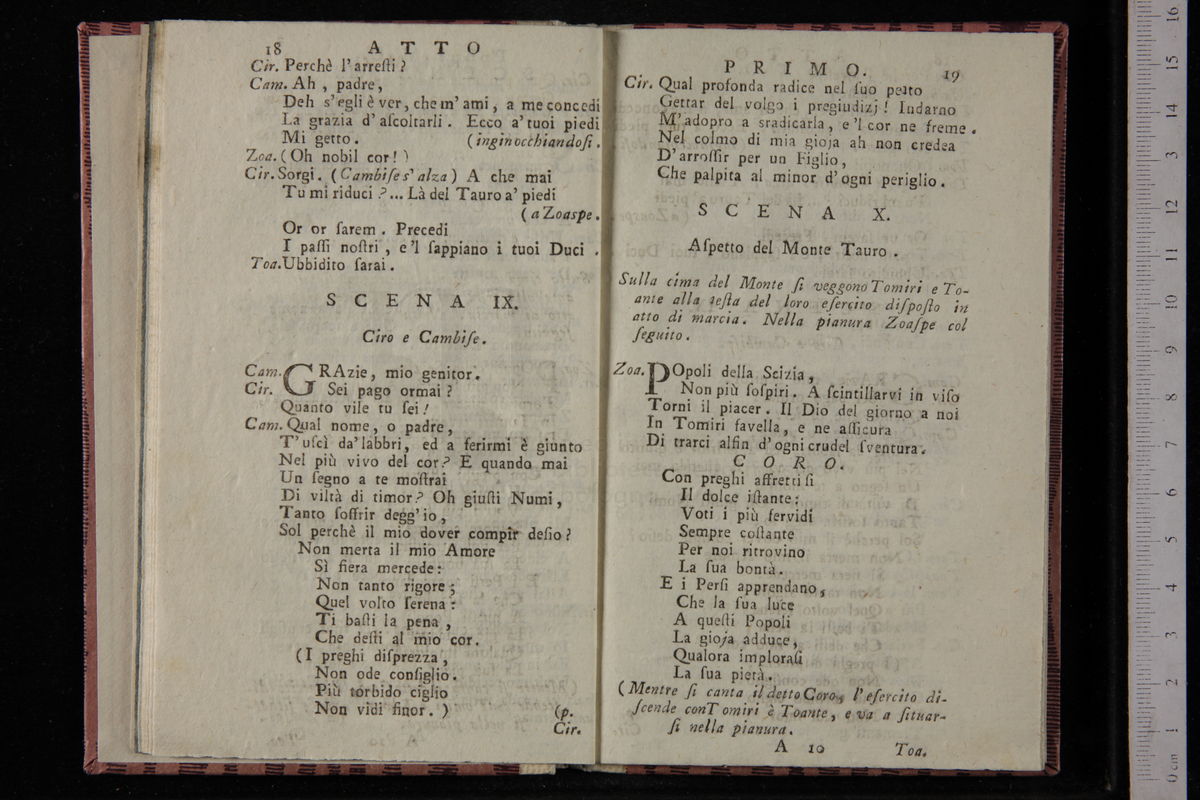 18 ATTO
Cir. Perchè l'arreſti?
Cam. Ah, padre,
Deh s'egli è ver, che m'ami, a me concedi
La grazia d'aſcoltarli. Ecco a'tuoi piedi
Mi getto. (inginocchiandoſi.
Zoa. (Oh nobil cor!)
Cir. Sorgi. (Cambiſe s'alza) A che mai
Tu mi riduci?... Là del Tauro a'piedi
(a Zoaspe.
Or or ſarem. Precedi
I paſſi noſtri, e'l ſappiano i tuoi Duci.
Toa. Ubbidito ſarai.
SCENA IX.
Ciro e Cambiſe.
Cam. GRAzie, mio genitor.
Cir. Sei pago ormai?
Quanto vile tu ſei!
Cam. Qual nome, o padre,
T'uſcì da'labbri, ed a ferirmi è giunto
Nel più vivo del cor? E quando mai
Un ſegno a te moſtrai
Di viltà di timor? Oh giuſti Numi,
Tanto ſoffrir degg'io,
Sol perchè il mio dover compir deſio?
Non merta il mio Amore
Sì fiera mercede:
Non tanto rigore;
Quel volto ſerena:
Ti baſti la pena,
Che deſti al mio cor.
(I preghi diſprezza,
Non ode conſiglio.
Più torbido ciglio
Non vidi finor.) (p.
Cir.
PRIMO. 19
Cir. Qual profonda radice nel ſuo petto
Gettar del volgo i pregiudizj! Indarno
M'adopro a sradicarla, e'l cor ne freme.
Nel colmo di mia gioja ah non credea
D'arroſſir per un Figlio,
Che palpita al minor d'ogni periglio.
SCENA X.
Aſpetto del Monte Tauro.
Sulla cima del Monte ſi veggono Tomiri e To-
ante alla teſta del loro eſercito diſpoſto in
atto di marcia. Nella pianura Zoaſpe col
ſeguito.
Zoa. POpoli della Scizia,
Non più ſoſpiri. A ſcintillarvi in viſo
Torni il piacer. Il Dio del giorno a noi
In Tomiri favella, e ne aſſicura
Di trarci alfin d'ogni crudel ſventura.
CORO.
Con preghi affrettiſi
Il dolce iſtante:
Voti i più fervidi
Sempre coſtante
Per noi ritrovino
La ſua bontà.
E i Perſi apprendano,
Che la ſua luce
A queſti Popoli
La gioja adduce,
Qualora imploraſi
La ſua pietà.
(Mentre ſi canta il detto Coro, l'eſercito di-
ſcende con Tomiri è Toante, e va a ſituar-
ſi nella pianura.
A 10 Toa.
0 cm 1 2 3 4 5 6 7 8 9 10 11 12 13 14 15 16